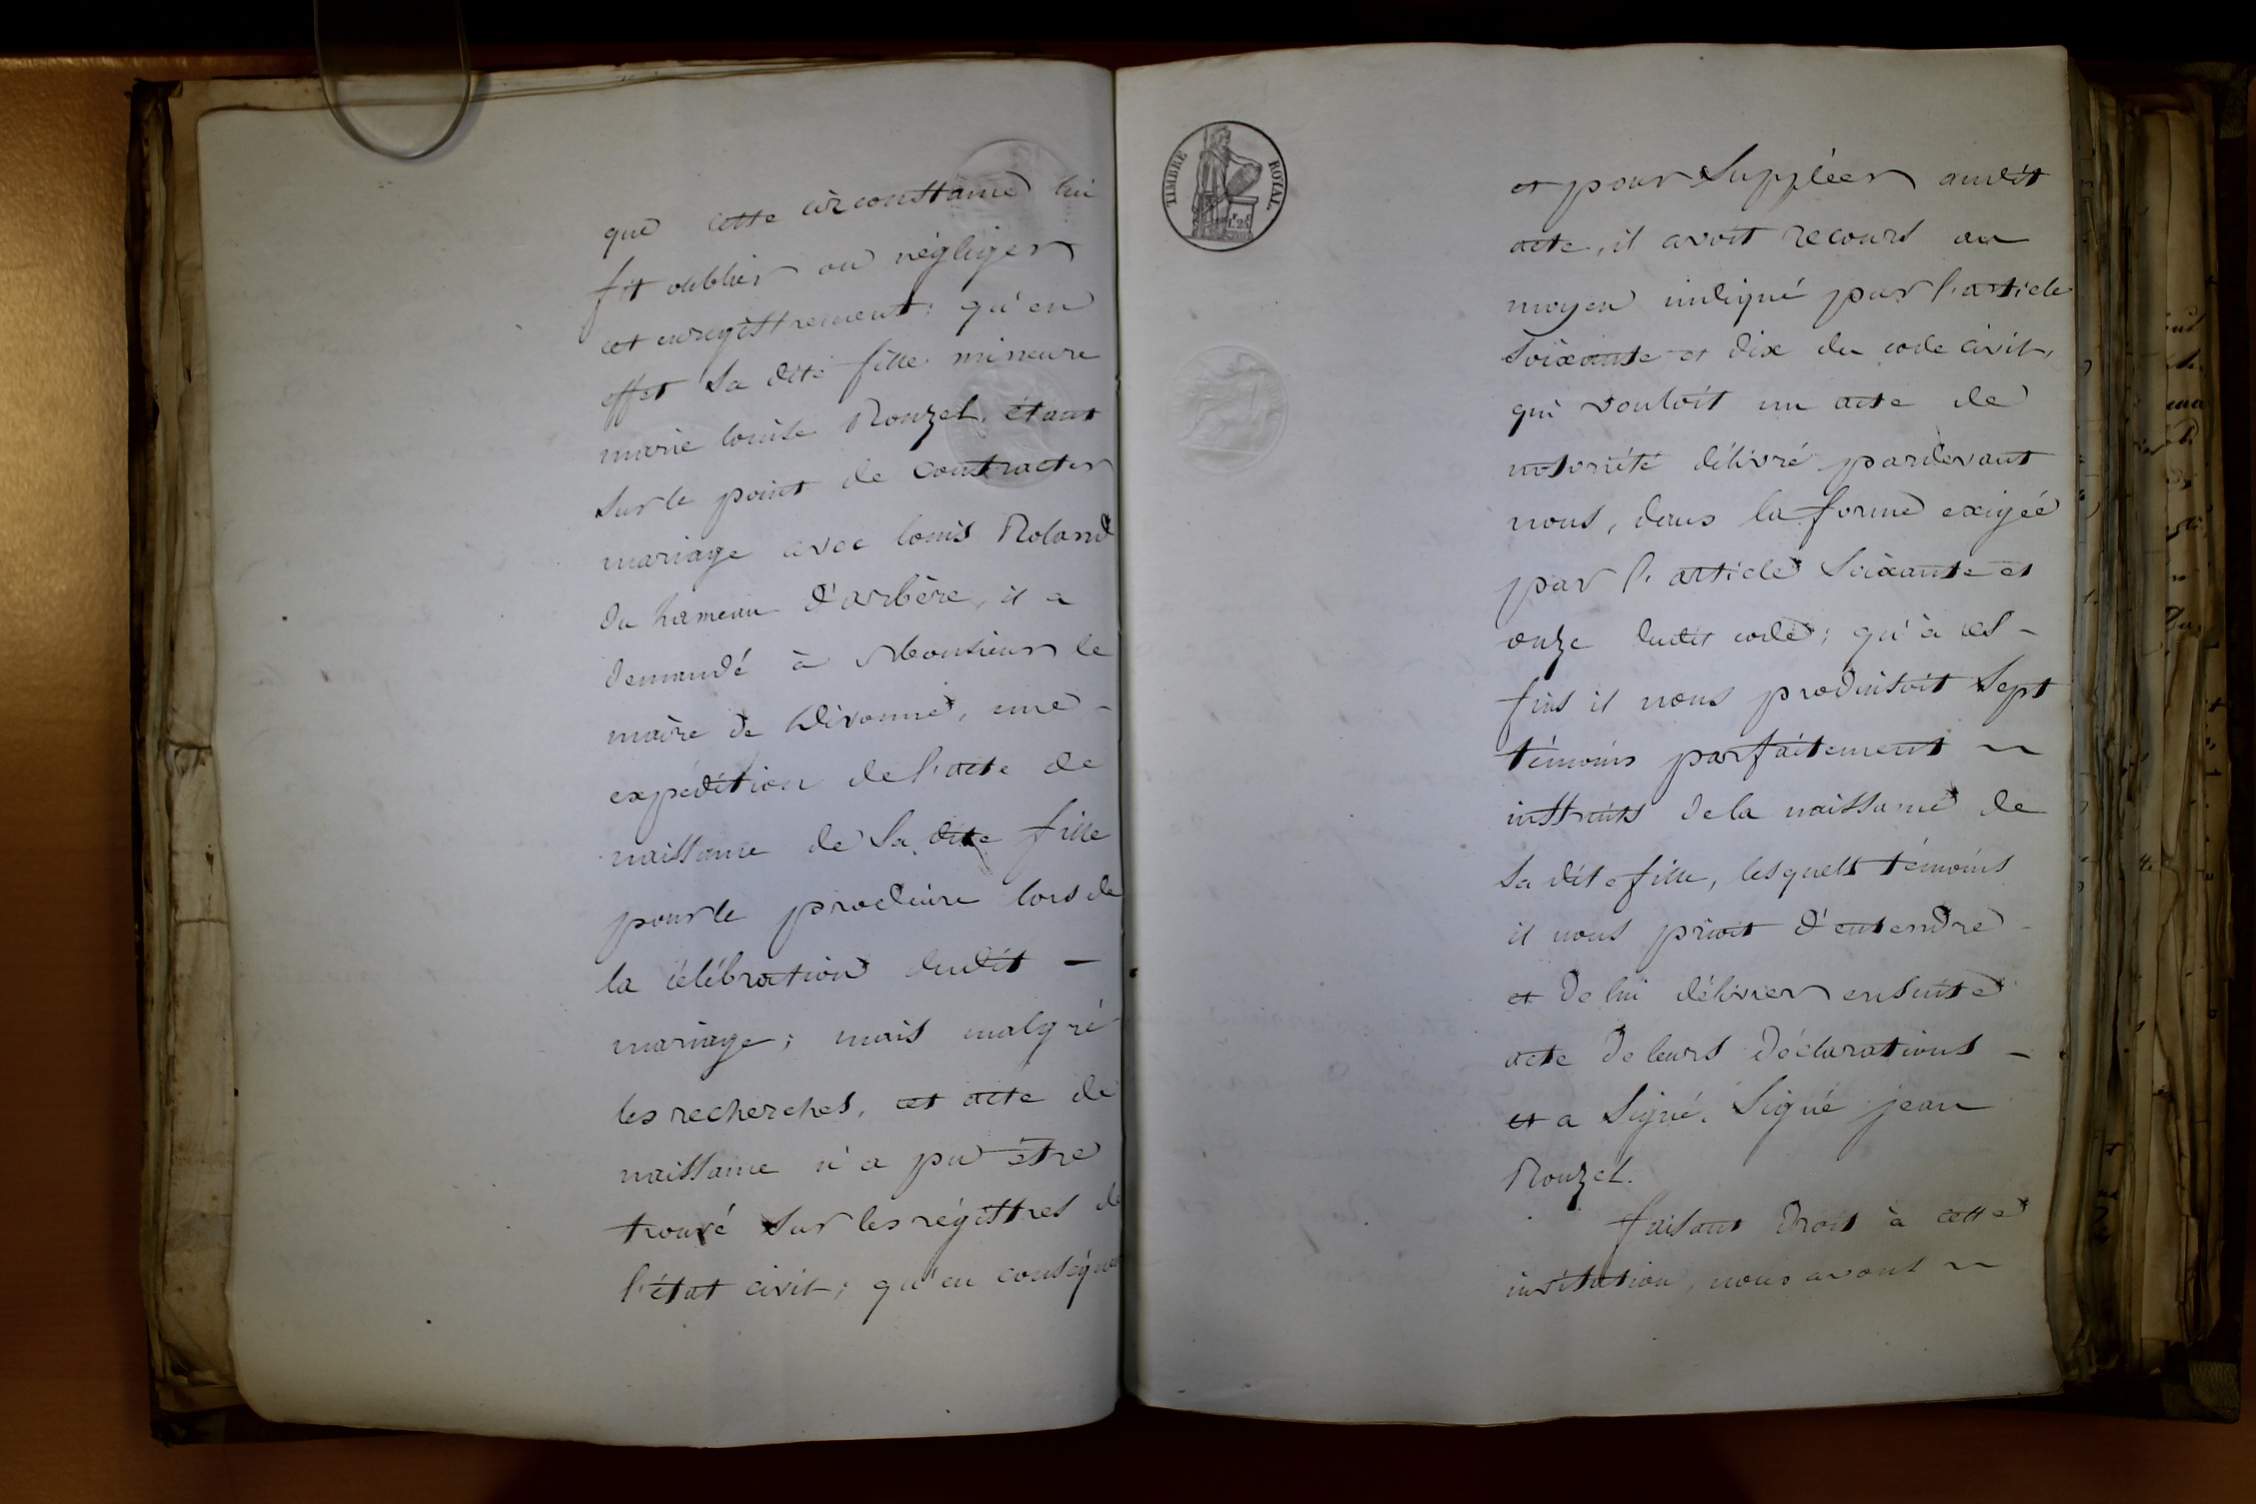 que cette circonstance lui
fit oublier ou négliger
cet enregistrement; qu'en
effet sa dite fille mineure
marie louise Rouzet, étant
sur le point de contracter
mariage avec louis Roland
du hameau d'arbère, il a
demandé à Monsieur le
maire de Divonne, une -
expédition de l'acte de
naissance de sa dite fille
pour le produire lors de
la célébration dudit -
mariage; mais malgré
les recherches, cet acte de
naissance n'a pu être
trouvé sur les régistres de
l'état civil; qu'en conséquence
TIMBRE ROYAL
et pour suppléer audit
acte, il avoit recours au
moyen indiqué par l'article
soixante et dix du code civil,
qui vouloit un acte de
notoriété délivré pardevant
nous, dans la forme exigée
par l'article soixante et
onze dudit code; qu'à ces -
fins il nous produisoit sept
témoins parfaitement ~
instruits de la naissance de
sa dite fille, lesquels témoins
il nous prioit d'entendre -
et de lui délivrer ensuite
acte de leurs déclarations -
et a signé. Signé jean
Rouzet.
faisant droit à cette
invitation, nous avons ~